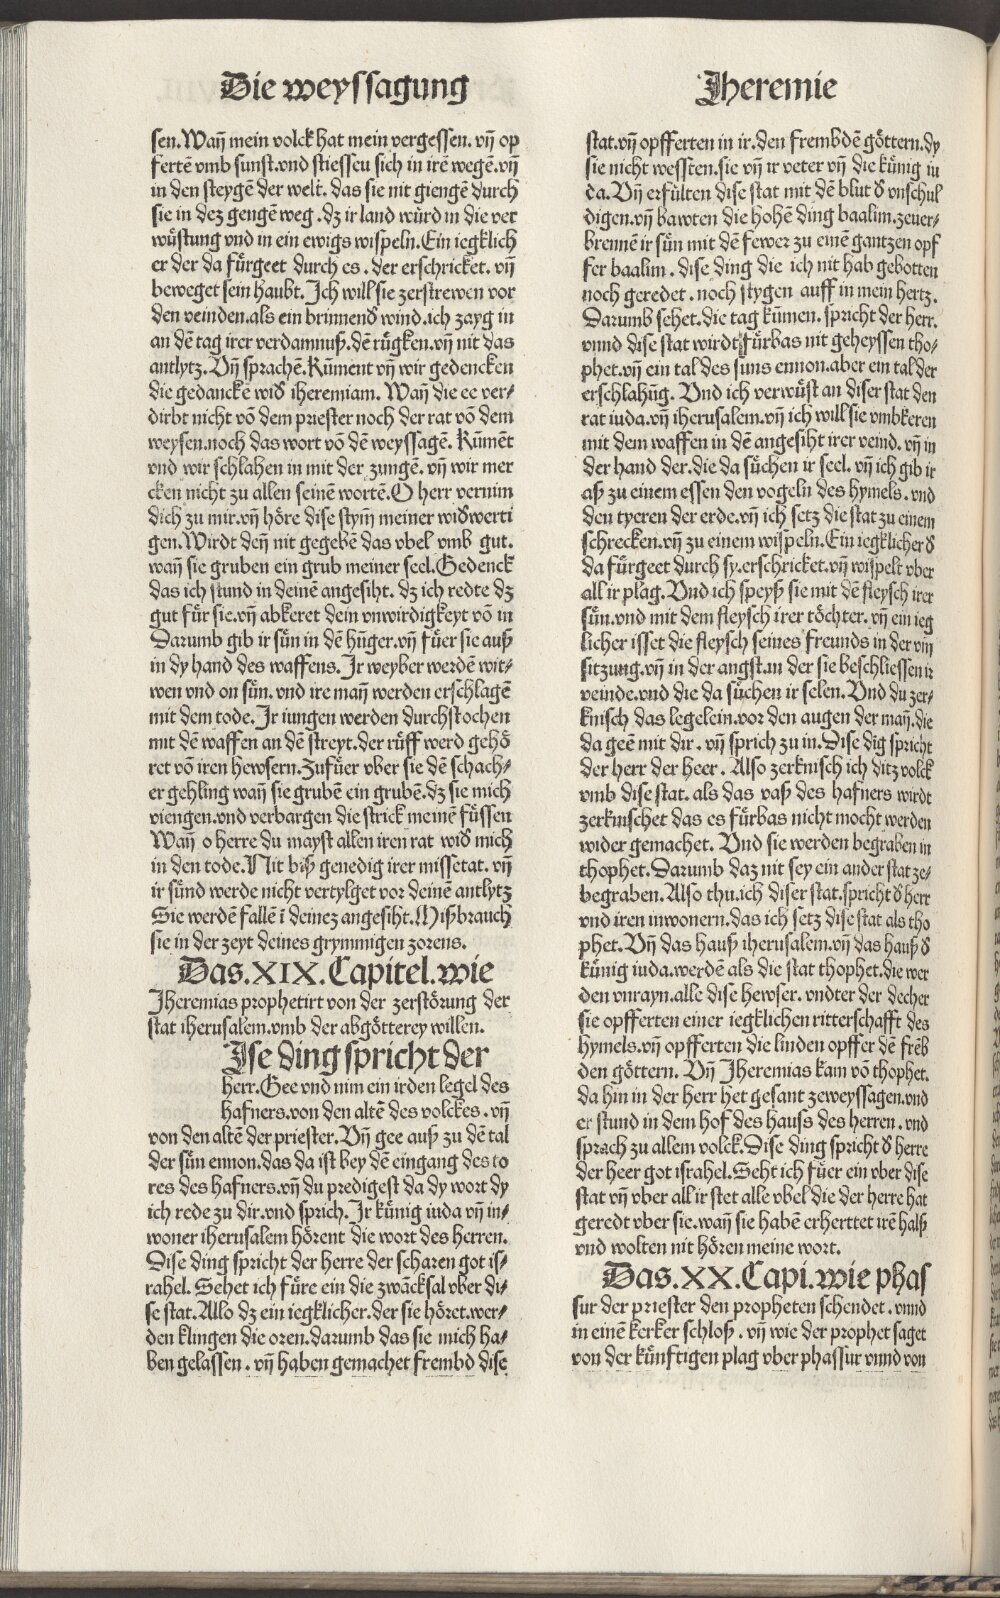 Die weyssagung
sen. Wañ mein volck hat mein vergessen. vñ op
fertē vmb sunst. vnd stiessen sich in irē wegē. vñ
in den steygē der welt. das sie nit giengē durch
sie in dez gengē weg. dz ir land würd in die ver
wůstung vnd in ein ewigs wispeln. Ein iegklich
er der da fürgeet durch es. der erschricket. vñ
beweget sein haubt. Ich will sie zerstrewen vor
den veinden. als ein brinnend wind. ich zayg in
an dē tag irer verdamnuß. dē růgken. vñ nit das
antlytz. Vñ sprachē. Kůment vñ wir gedencken
die gedanckē wid iheremiam. Wañ die ee ver⸗
dirbt nicht võ dem priester noch der rat võ dem
weysen. noch das wort võ dē weyssagē. Kůmēt
vnd wir schlahen in mit der zungē. vñ wir mer
cken nicht zu allen seinē wortē. O herr vernim
dich zu mir. vñ höre dise stym̃ meiner widwerti
gen. Wirdt deñ nit gegebē das vbel vmb gut.
wañ sie gruben ein grub meiner seel. Gedenck
das ich stund in deinē angesiht. dz ich redte dz
gut für sie. vñ abkeret dein vnwirdigkeyt võ in
Darumb gib ir sůn in dē hůger. vñ fůer sie auß
in dy hand des waffens. Ir weyber werdē wit⸗
wen vnd on sůn. vnd ire mañ werden erschlagē
mit dem tode. Ir iungen werden durchstochen
mit dē waffen an dē streyt. der růff werd gehö
ret võ iren hewsern. Zufůer vber sie dē schach⸗
er gehling wañ sie grubē ein grubē. dz sie mich
viengen. vnd verbargen die strick meinē füssen
Wañ o herre du mayst allen iren rat wid mich
in den tode. Nit biß genedig irer missetat. vñ
ir sůnd werde nicht vertylget vor deinē antlytz
Sie werdē fallē ī deinez angesiht. Mißbrauch
sie in der zeyt deines grymmigen zorens.
Das. XIX. Capitel. wie
Jheremias prophetirt von der zerstörung der
stat iherusalem. vmb der abgötterey willen.
Ise ding spricht der
herr. Gee vnd nim ein irden legel des
hafners. von den altē des volckes. vñ
von den altē der priester. Vñ gee auß zu dē tal
der sůn ennon. das da ist bey dē eingang des to
res des hafners. vñ du predigest da dy wort dy
ich rede zu dir. vnd sprich. Ir künig iuda vñ in⸗
woner iherusalem hörent die wort des herren.
Dise ding spricht der herre der scharen got is⸗
rahel. Sehet ich füre ein die zwäcksal vber di⸗
se stat. Allo dz ein iegklicher. der sie höret. wer⸗
den klingen die oren. darumb das sie mich ha⸗
ben gelassen. vñ haben gemachet frembd dise
Jheremie
stat. vñ opfferten in ir. den frembdē göttern. dy
sie nicht wessten. sie vñ ir veter vñ die künig iu
da. Vñ erfülten dise stat mit dē blut d vnschul
digen. vñ bawten die hohē ding baalim. zeuer⸗
brennē ir sůn mit dē fewer zu einē gantzen opf
fer baalim. dise ding die ich nit hab gebotten
noch geredet. noch stygen auff in mein hertz.
Darumb sehet. die tag kůmen. spricht der herr.
vnnd dise stat wirdt fürbas nit geheyssen tho⸗
phet. vñ ein tal des suns ennon. aber ein tal der
erschlahũg. Vnd ich verwůst an diser stat den
rat iuda. vñ iherusalem. vñ ich will sie vmbkeren
mit dem waffen in dē angesiht irer veind. vñ in
der hand der. die da sůchen ir seel. vñ ich gib ir
aß zu einem essen den vogeln des hymels. vnd
den tyeren der erde. vñ ich setz die stat zu einem
schrecken. vñ zu einem wispeln. Ein iegklicher d
da fürgeet durch sy. erschricket. vñ wispelt vber
all ir plag. Vnd ich speyß sie mit dē fleysch irer
sůn. vnd mit dem fleysch irer töchter. vñ ein ieg
licher isset die fleysch seines freunds in der vm
sitzung. vñ in der angst. in der sie beschliessen ir
veinde. vnd die da sůchen ir selen. Vnd du zer⸗
knisch das legelein. vor den augen der mañ. die
da geē mit dir. vñ sprich zu in. Dise dig spricht
der herr der heer. Also zerknisch ich ditz volck
vmb dise stat. als das vaß des hafners wirdt
zerknischet das es fürbas nicht mocht werden
wider gemachet. Vnd sie werden begraben in
thophet. Darumb daz nit sey ein ander stat ze⸗
begraben. Also thu. ich diser stat. spricht d herr
vnd iren inwonern. das ich setz dise stat als tho
phet. Vñ das hauß iherusalem. vñ das hauß d
künig iuda. werdē als die stat thophet. die wer
den vnrayn. alle dise hewser. vndter der decher
sie opfferten einer iegklichen ritterschafft des
hymels. vñ opfferten die linden opffer dē frēb
den göttern. Vñ Jheremias kam võ thophet.
da hin in der herr het gesant zeweyssagen. vnd
er stund in dem hof des hauss des herren. vnd
sprach zu allem volck. Dise ding spricht d herre
der heer got israhel. Seht ich füer ein vber dise
stat vñ vber all ir stet alle vbel die der herre hat
geredt vber sie. wañ sie habē erherttet irē halß
vnd wolten nit hören meine wort.
Das. XX. Capi. wie phas
sur der priester den propheten schendet. vnnd
in einē kerker schloß. vñ wie der prophet saget
von der künftigen plag vber phassur vnnd von